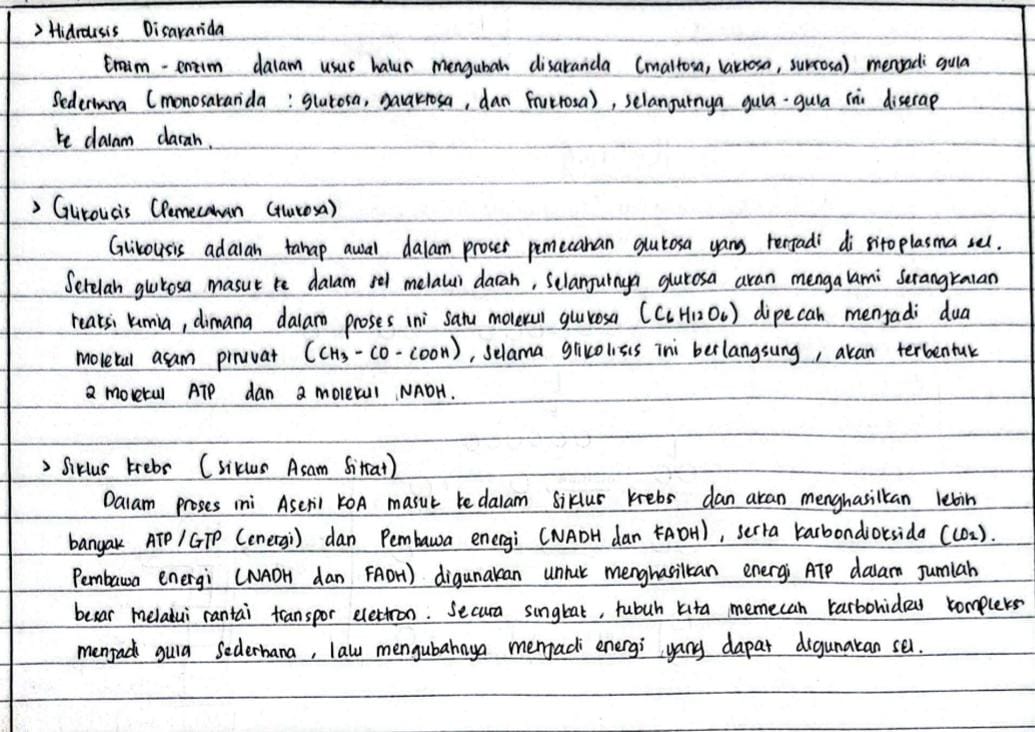 > Hidrolisis Disakarida
Enzim - enzim dalam usus halus mengubah disakarida (maltosa, laktosa, sukrosa) menjadi gula
Sederhana (monosakarida : glukosa, galaktosa, dan fruktosa), selanjutnya gula-gula ini diserap
ke dalam darah.
> Glikolisis (Pemecahan Glukosa)
Glikolisis adalah tahap awal dalam proses pemecahan glukosa yang terjadi di sitoplasma sel.
Setelah glukosa masuk ke dalam sel melalui darah, Selanjutnya glukosa akan mengalami serangkaian
reaksi kimia, dimana dalam proses ini satu molekul glukosa (C6H12O6) dipecah menjadi dua
molekul asam piruvat (CH3 - CO - COOH), Selama glikolisis ini berlangsung, akan terbentuk
2 molekul ATP dan 2 molekul NADH.
> Siklus Krebs (siklus Asam Sitrat)
Dalam proses ini Asetil KOA masuk ke dalam Siklus Krebs dan akan menghasilkan lebih
banyak ATP/GTP (energi) dan Pembawa energi (NADH dan FADH), serta karbondioksida (CO2).
Pembawa energi (NADH dan FADH) digunakan untuk menghasilkan energi ATP dalam jumlah
besar melalui rantai transpor electron. Secara singkat, tubuh kita memecah karbohidrat kompleks
menjadi gula Sederhana, lalu mengubahnya menjadi energi yang dapat digunakan sel.